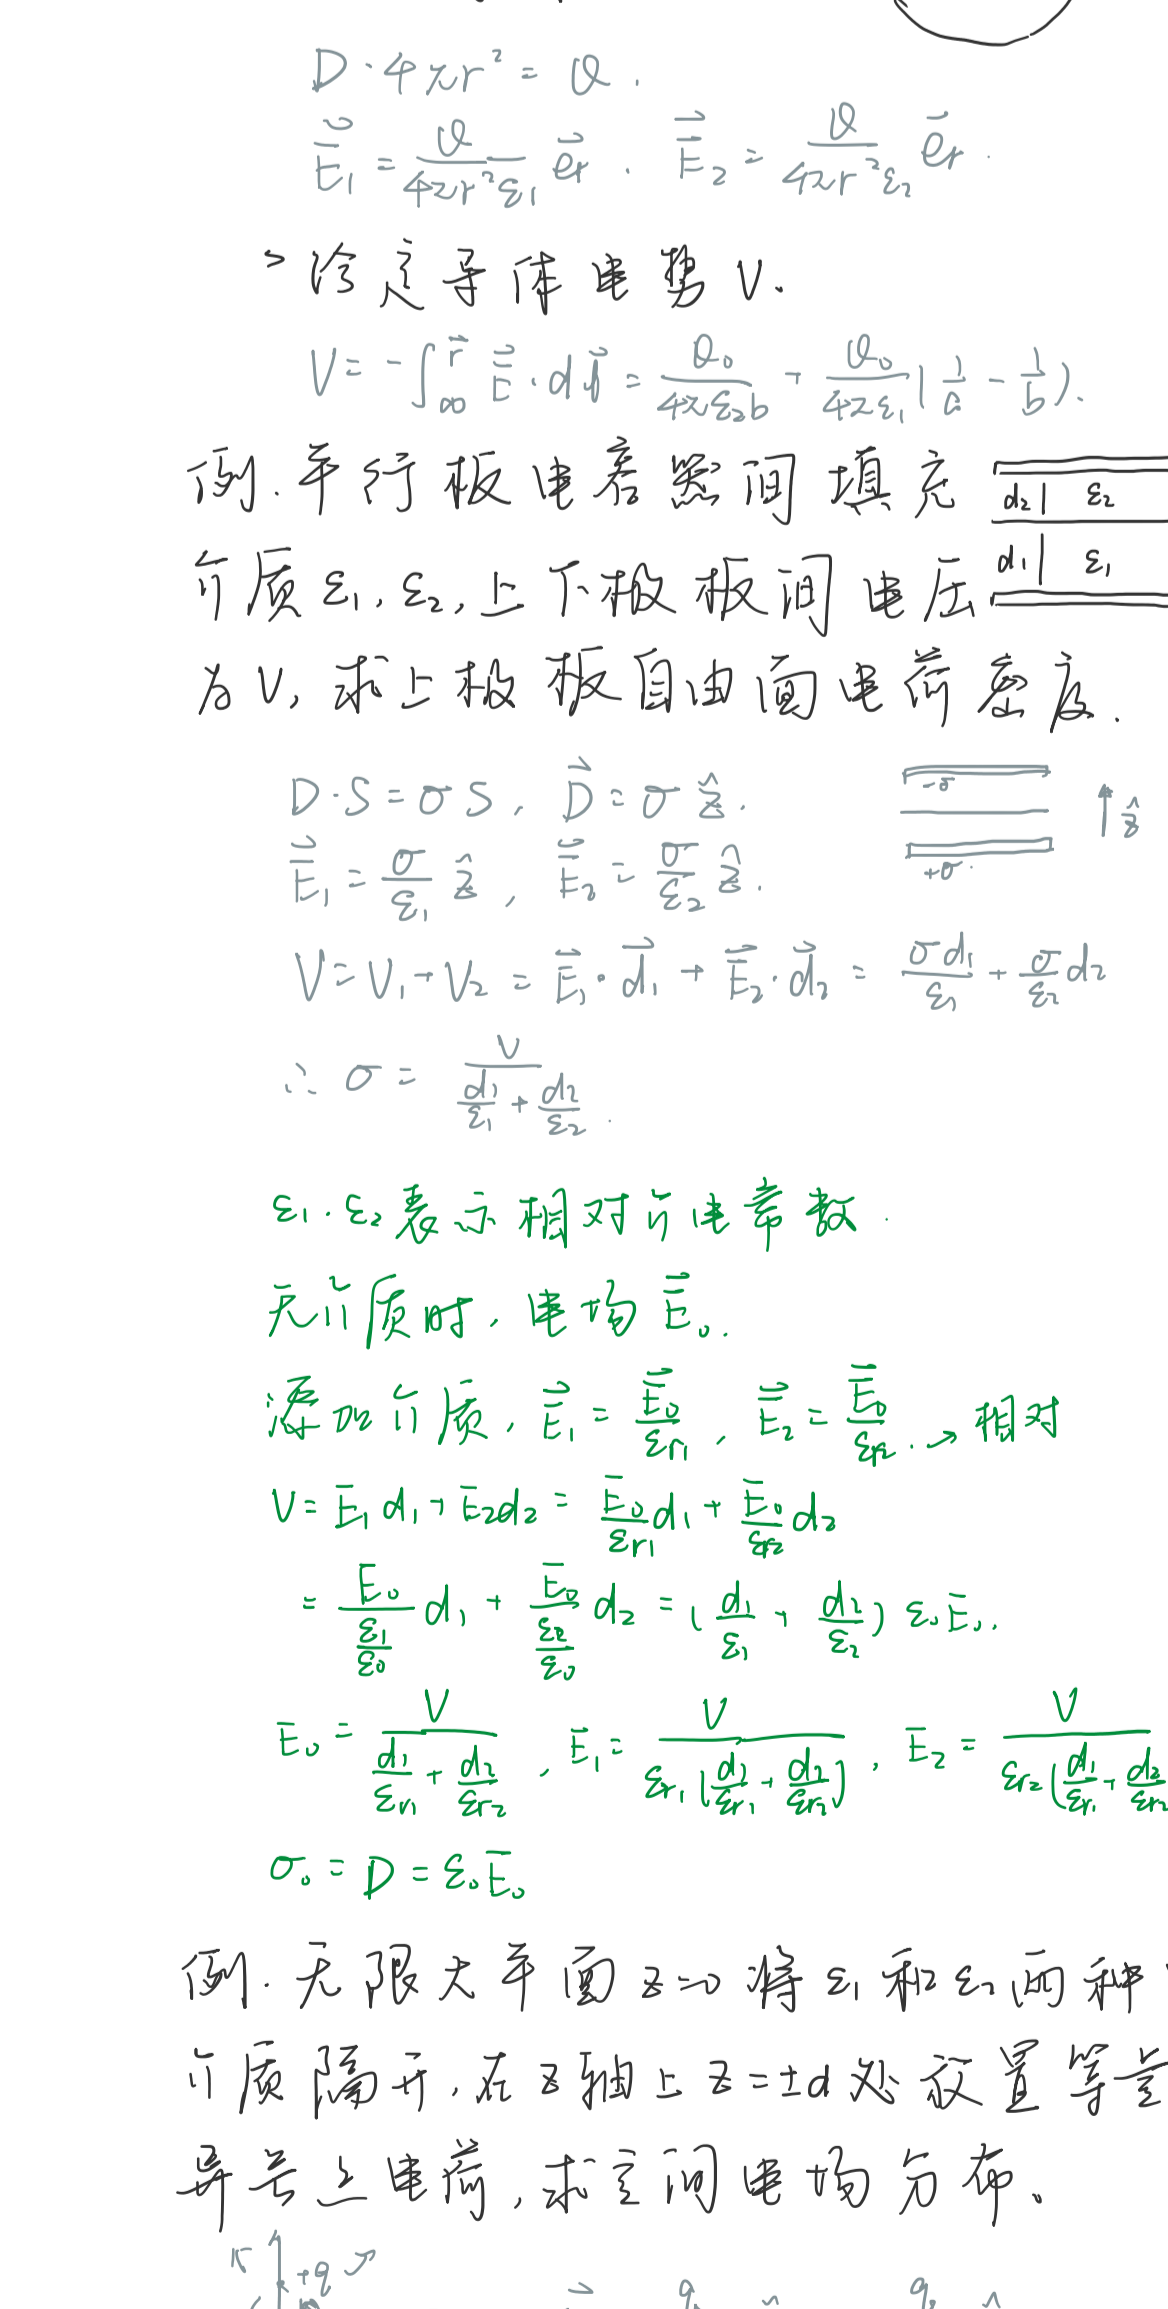 D · 4πr² = Q .
E⃗₁ = Q/(4πr²ε₁) e⃗r . E⃗₂ = Q/(4πr²ε₂) e⃗r .
> 给定导体电势 V.
V = - ∫_∞^r⃗ E⃗ · dl⃗ = Q₀/(4πε₂b) + Q₀/(4πε₁) (1/a - 1/b).
例. 平行板电容器间填充
d₂ ε₂
介质 ε₁, ε₂, 上下极板间电压
d₁ ε₁
为 V, 求上极板自由面电荷密度.
D · S = σ S , D⃗ = σ ẑ .
-σ
ẑ
+σ
E⃗₁ = σ/ε₁ ẑ , E⃗₂ = σ/ε₂ ẑ .
V = V₁ + V₂ = E⃗₁ · d⃗₁ + E⃗₂ · d⃗₂ = σd₁/ε₁ + σ/ε₂ d₂
∴ σ = V/(d₁/ε₁ + d₂/ε₂) .
ε₁ . ε₂ 表示相对介电常数 .
无介质时, 电场 E⃗₀ .
添加介质, E⃗₁ = E⃗₀/εr₁ , E⃗₂ = E⃗₀/εr₂ . → 相对
V = E₁d₁ + E₂d₂ = E₀/εr₁ d₁ + E₀/εr₂ d₂
= E₀/(ε₁/ε₀) d₁ + E₀/(ε₂/ε₀) d₂ = (d₁/ε₁ + d₂/ε₂) ε₀E₀ .
E₀ = V/(d₁/εr₁ + d₂/εr₂) , E₁ = V/(εr₁(d₁/εr₁ + d₂/εr₂)) , E₂ = V/(εr₂(d₁/εr₁ + d₂/εr₂
σ₀ = D = ε₀E₀
例. 无限大平面 z=0 将 ε₁ 和 ε₂ 两种
介质隔开, 在 z 轴上 z = ±d 处放置等量
异号点电荷, 求空间电场分布。
+q
q q